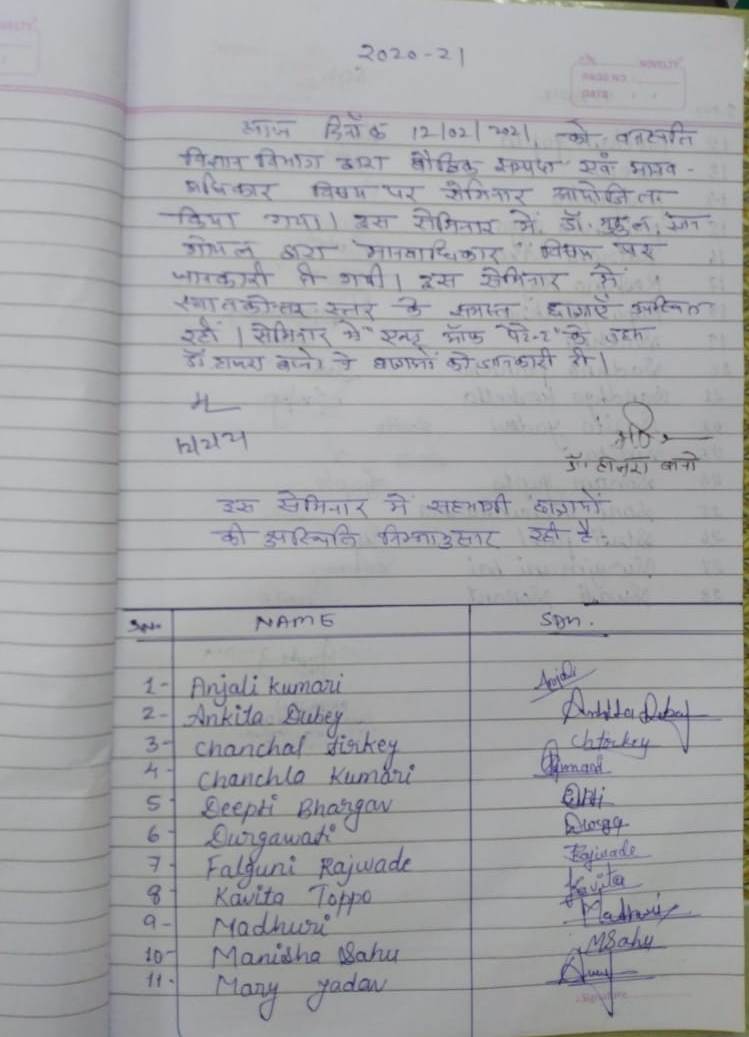 2020-21
आज दिनाँक 12/02/2021 को वनस्पति
विज्ञान विभाग द्वारा बौद्धिक सम्पदा एवं मानव-
अधिकार विषय पर सेमिनार आयोजित
किया गया। इस सेमिनार में डॉ. मृदुल
गोयल द्वारा "मानवाधिकार" विषय पर
जानकारी दी गयी। इस सेमिनार में
स्नातकोत्तर स्तर के समस्त छात्राएँ उपस्थित
रहीं। सेमिनार में के तहत
डॉ. हाजरा बानो ने छात्राओं को जानकारी दी।
डॉ. हाजरा बानो
इस सेमिनार में सहभागी छात्राओं
की उपस्थिति निम्नानुसार रही है:
S.No. NAME Sign.
1- Anjali Kumari Anjali
2- Ankita Dubey Ankita Dubey
3- Chanchal Tirkey Chtirkey
4- Chanchla Kumari
5- Deepti Bhargav
6- Durgawati Durga
7- Falguni Rajwade Rajwade
8- Kavita Toppo Kavita
9- Madhuri Madhuri
10- Manisha Sahu MSahu
11- Mary Yadav